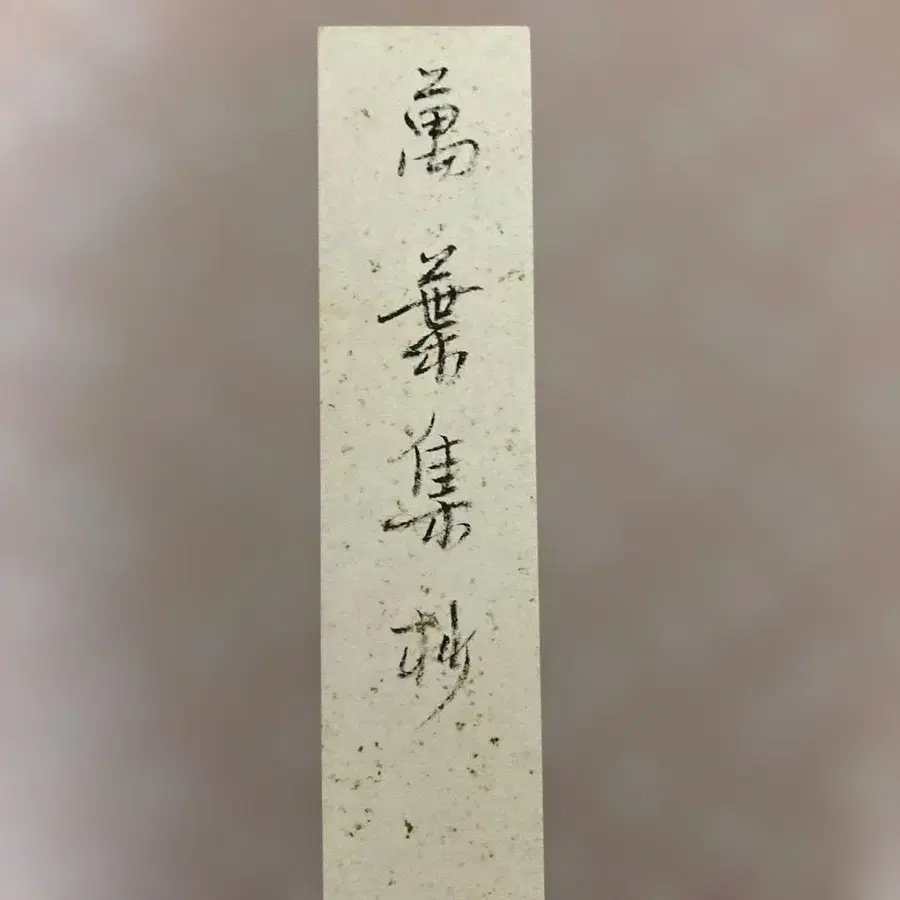 萬葉集抄